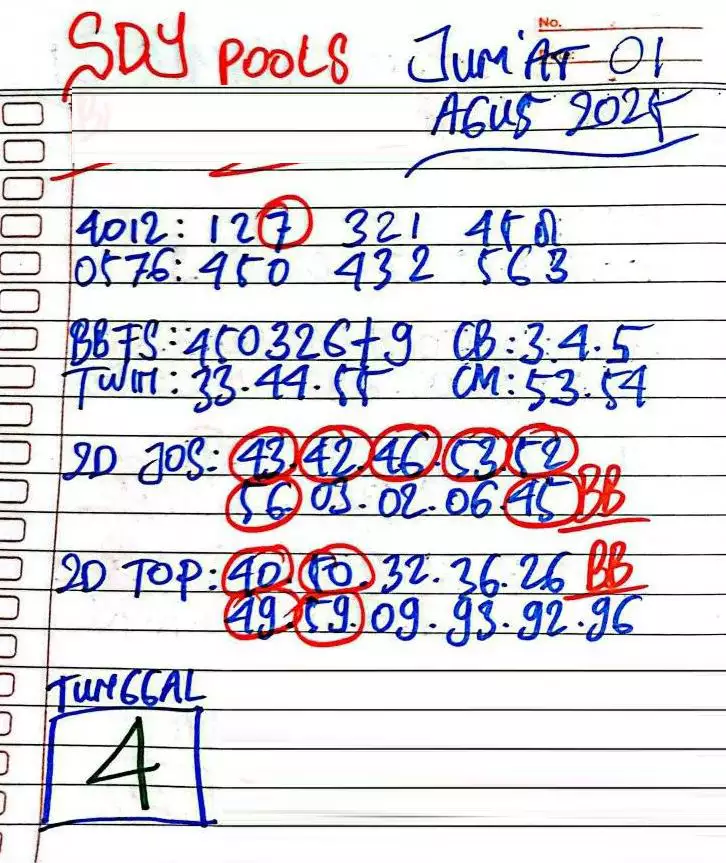 No.
SDY POOLS JUM'AT 01
AGUS 2025
4012: 127 321 458
0576: 450 432 563
BBFS: 450326+9 CB: 3.4.5
TWIN: 33.44.55 CM: 53.54
2D JOS: 43.42.46.53.52
56.03.02.06.45 BB
2D TOP: 40.50.32.36.26 BB
49.59.09.93.92.96
TUNGGAL
4